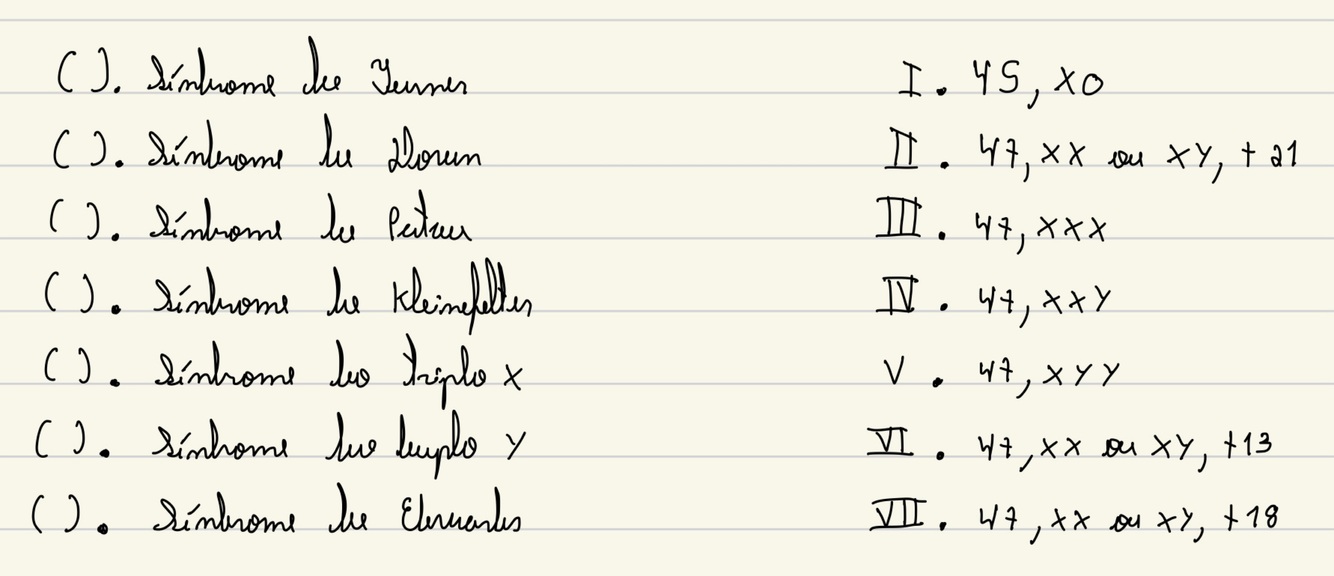 ( ). Síndrome de Turner I. 45, X0
( ). Síndrome de Down II. 47, XX ou XY, +21
( ). Síndrome de Patau III. 47, XXX
( ). Síndrome de Kleinefelter IV. 47, XXY
( ). Síndrome do triplo X V. 47, XYY
( ). Síndrome do duplo Y VI. 47, XX ou XY, +13
( ). Síndrome de Edwards VII. 47, XX ou XY, +18